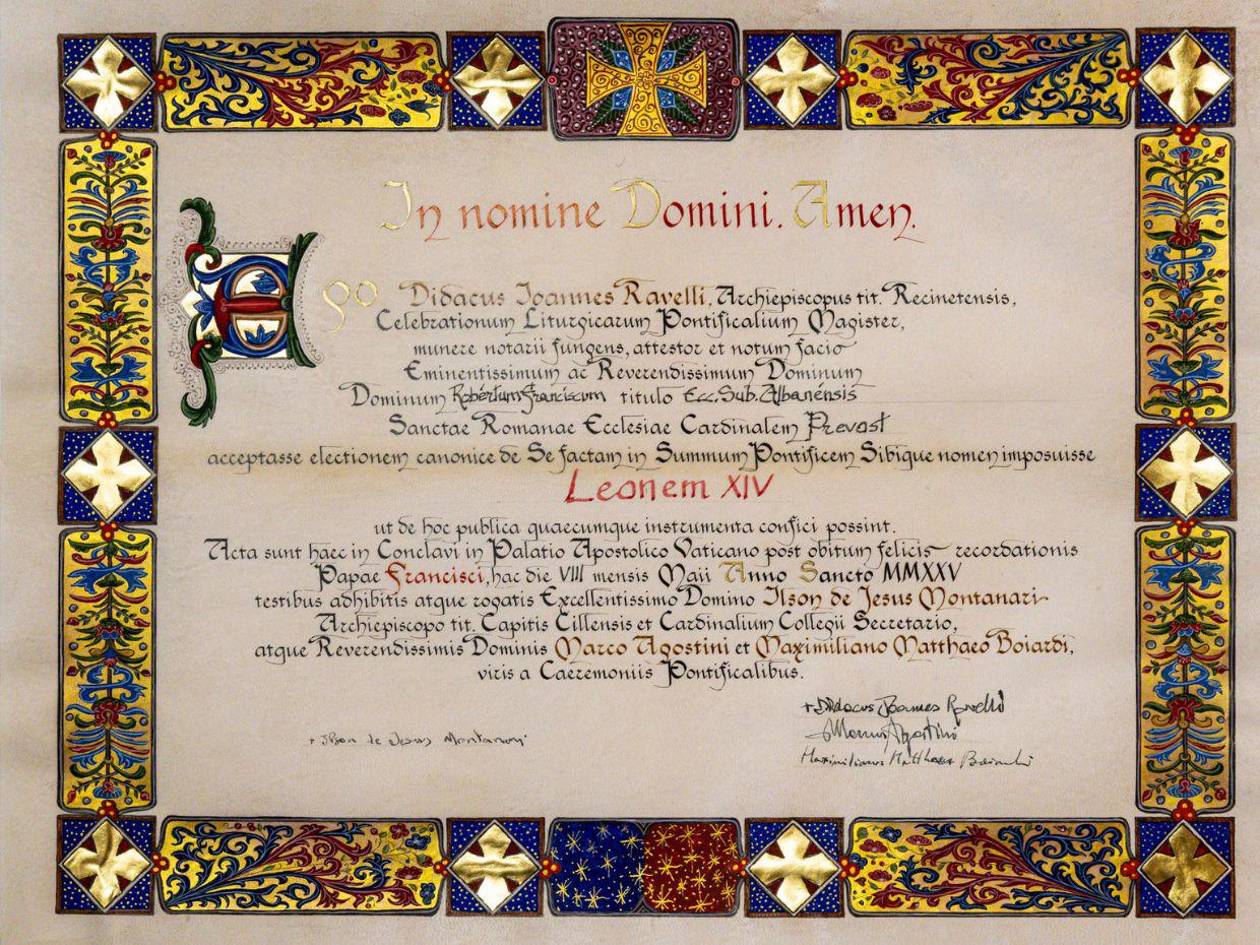 In nomine Domini. Amen.
Ego Didacus Joannes Ravelli, Archiepiscopus tit. Recinetensis,
Celebrationum Liturgicarum Pontificalium Magister,
munere notarii fungens, attestor et notum facio
Eminentissimum ac Reverendissimum Dominum
Dominum Robértum Franciscum titulo Ecc. Sub. Albanénsis
Sanctae Romanae Ecclesiae Cardinalem Prevost
acceptasse electionem canonice de Se factam in Summum Pontificem Sibique nomen imposuisse
Leonem XIV
ut de hoc publica quaecumque instrumenta confici possint.
Acta sunt haec in Conclavi in Palatio Apostolico Vaticano post obitum felicis recordationis
Papae Francisci, hac die VIII mensis Maii Anno Sancto MMXXV
testibus adhibitis atque rogatis Excellentissimo Domino Ilson de Jesus Montanari
Archiepiscopo tit. Capitis Cillensis et Cardinalium Collegii Secretario,
atque Reverendissimis Dominis Marco Agostini et Maximiliano Matthaeo Boiardi,
viris a Caeremoniis Pontificalibus.
+ Didacus Joannes Ravelli
+ Ilson de Jesus Montanari
Marcus Agostini
Maximilianus Matthaeus Boiardi